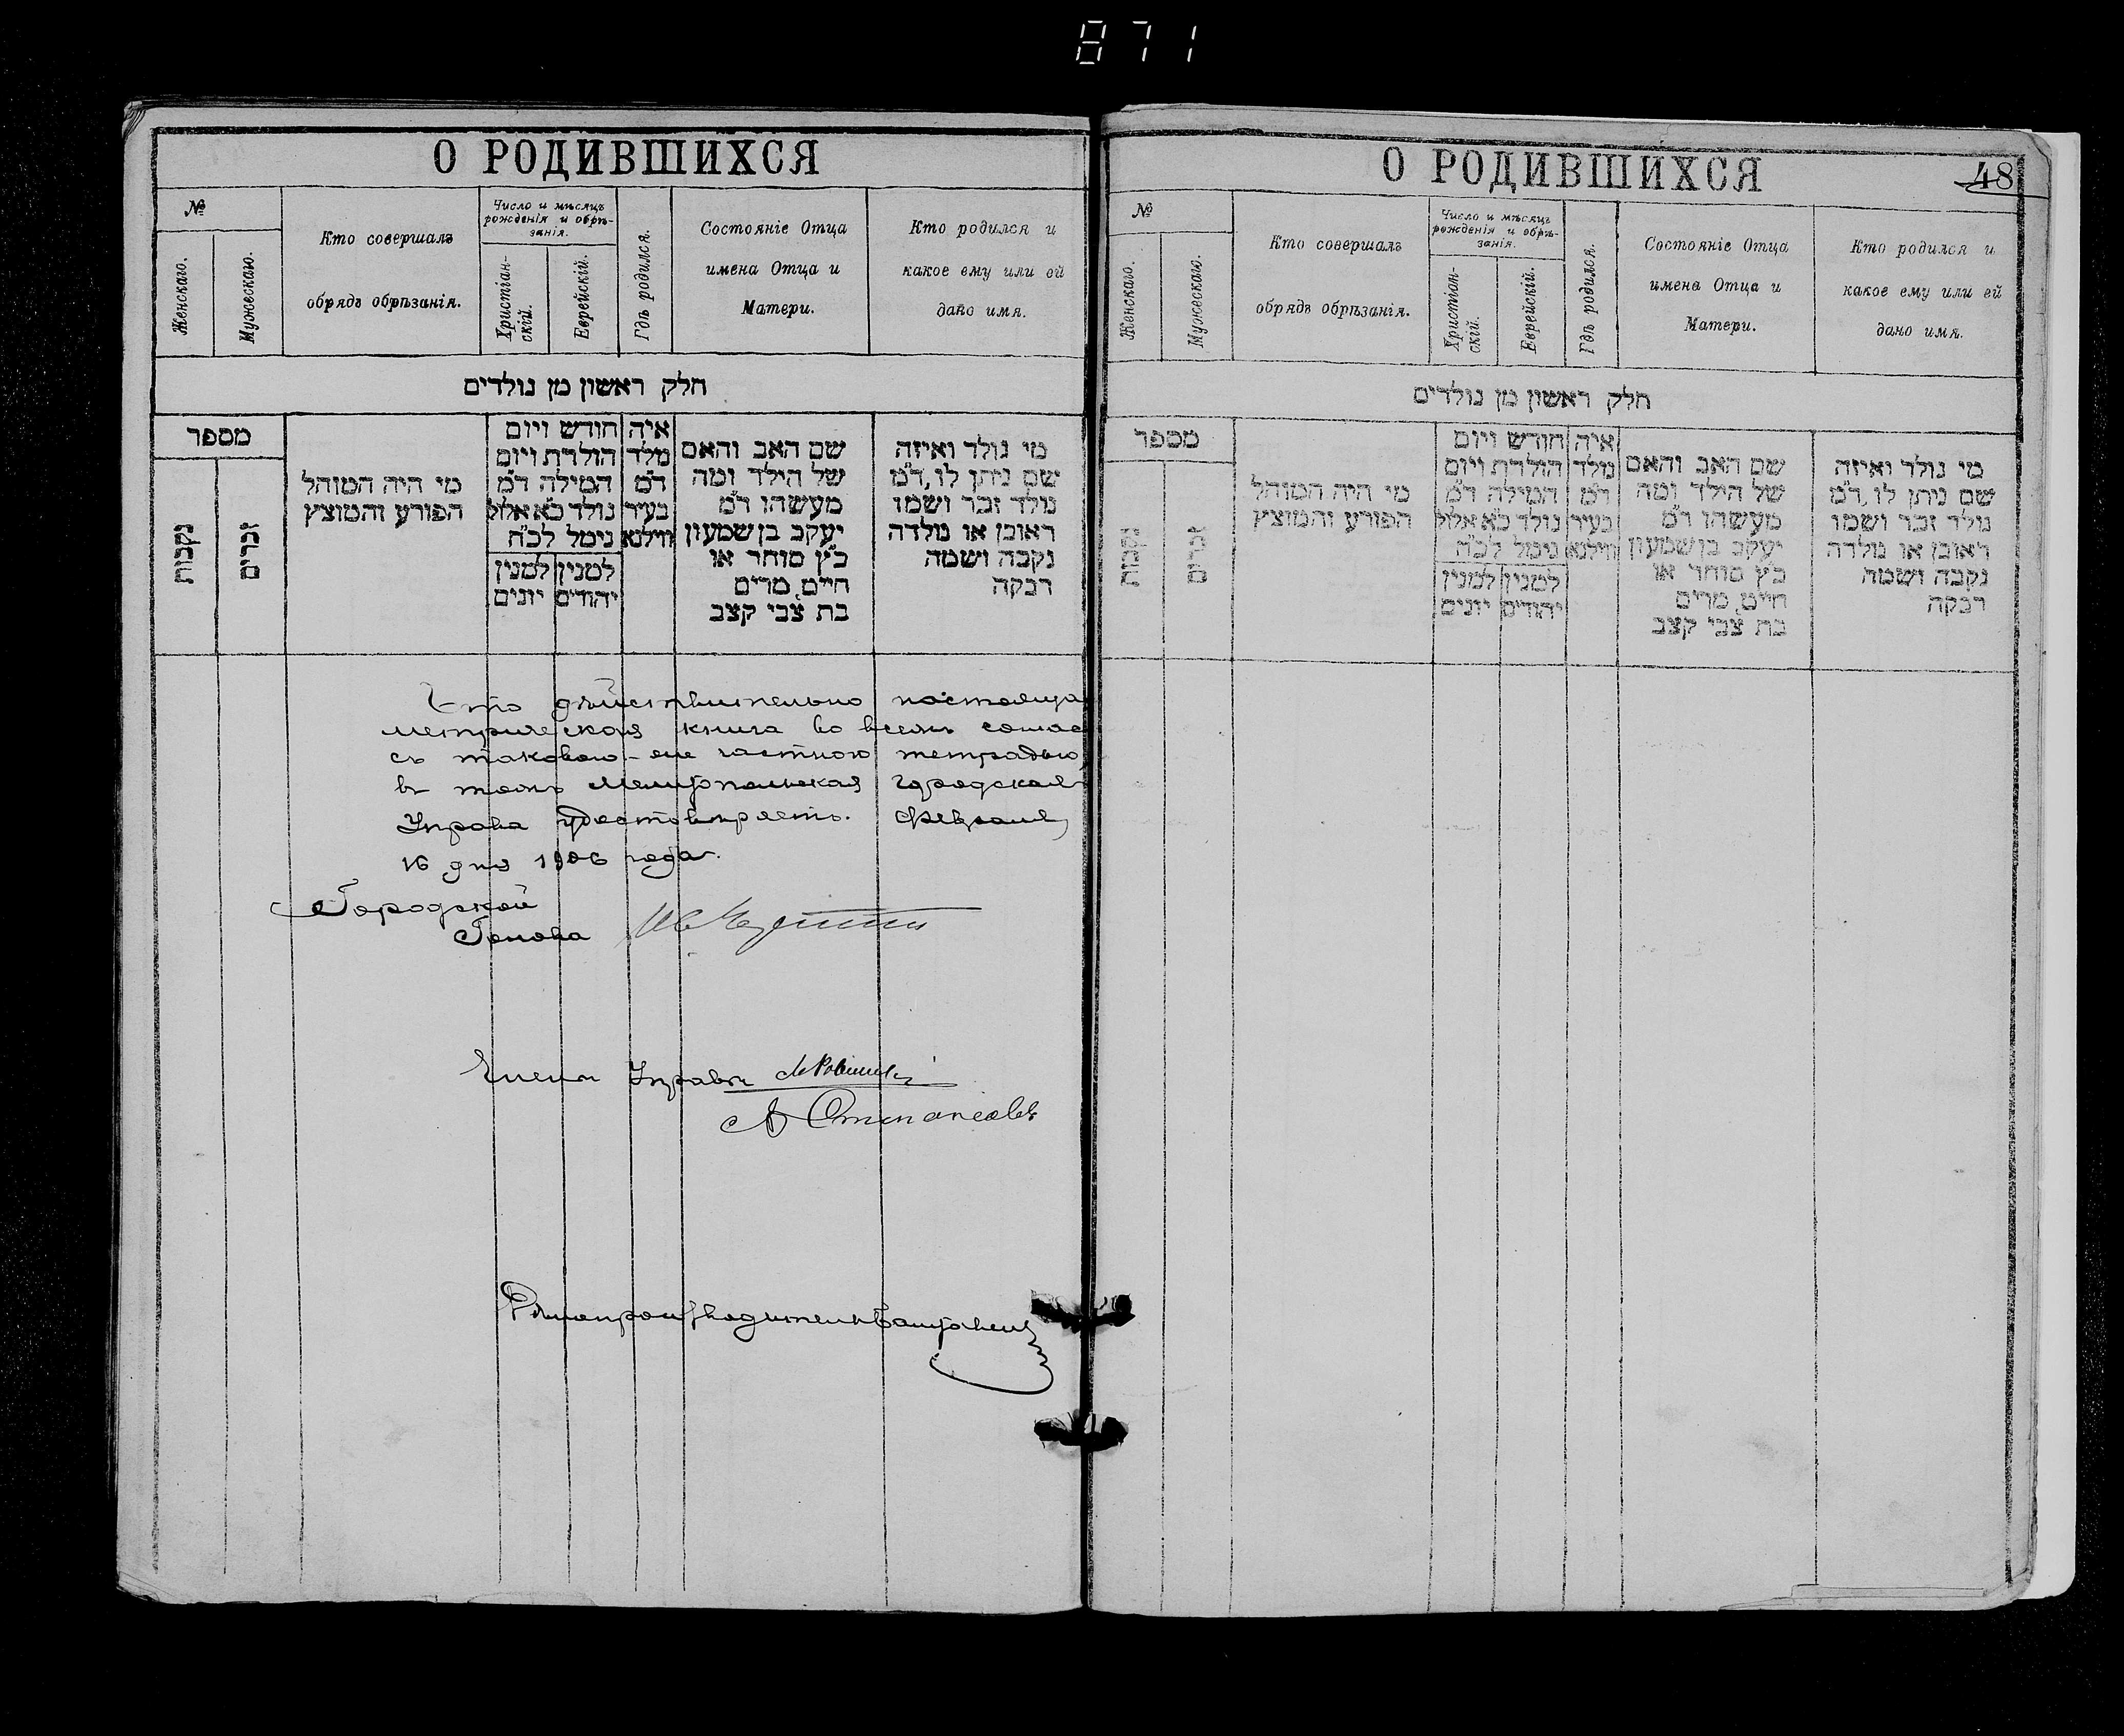 871
О РОДИВШИХСЯ
№
Женскаго.
Мужескаго.
Кто совершалъ
обрядъ обрѣзанія.
Число и мѣсяцъ
рожденія и обрѣ-
занія.
Христіан-
скій.
Еврейскій.
Гдѣ родился.
Состояніе Отца
имена Отца и
Матери.
Кто родился и
какое ему или ей
дано имя.
חלק ראשון מן נולדים
מספר
נקבות
זכרים
מי היה המוהל
הפורע והמוצץ
חודש ויום
הולדת ויום
המילה ד״מ
נולד כ״א אלול
נימל לכ״ח
למנין
יהודים
למנין
יונים
איה
מלד
ד״מ
בעיר
ווילנא
שם האב והאם
של הילד ומה
מעשהו ד״מ
יעקב בן שמעון
כ״ץ סוחר או
חייט, מרים
בת צבי קצב
מי נולד ואיזה
שם ניתן לו, ד״מ
נולד זכר ושמו
ראובן או נולדה
נקבה ושמה
רבקה
Что дѣйствительно настояща
метрическая книга во всемъ соглас
съ таковою-же частною тетрадью
въ томъ Мелитопольская Городская
Управа удостовѣряетъ. Февраля
16 дня 1906 года.
Городской
Голова
Члены Управы
Дѣлопроизводитель
О РОДИВШИХСЯ
48
№
Женскаго.
Мужескаго.
Кто совершалъ
обрядъ обрѣзанія.
Число и мѣсяцъ
рожденія и обрѣ-
занія.
Христіан-
скій.
Еврейскій.
Гдѣ родился.
Состояніе Отца
имена Отца и
Матери.
Кто родился и
какое ему или ей
дано имя.
חלק ראשון מן נולדים
מספר
נקבות
זכרים
מי היה המוהל
הפורע והמוצץ
חודש ויום
הולדת ויום
המילה ד״מ
נולד כ״א אלול
נימל לכ״ח
למנין
יהודים
למנין
יונים
איה
מלד
ד״מ
בעיר
ווילנא
שם האב והאם
של הילד ומה
מעשהו ד״מ
יעקב בן שמעון
כ״ץ סוחר או
חייט, מרים
בת צבי קצב
מי נולד ואיזה
שם ניתן לו, ד״מ
נולד זכר ושמו
ראובן או נולדה
נקבה ושמה
רבקה